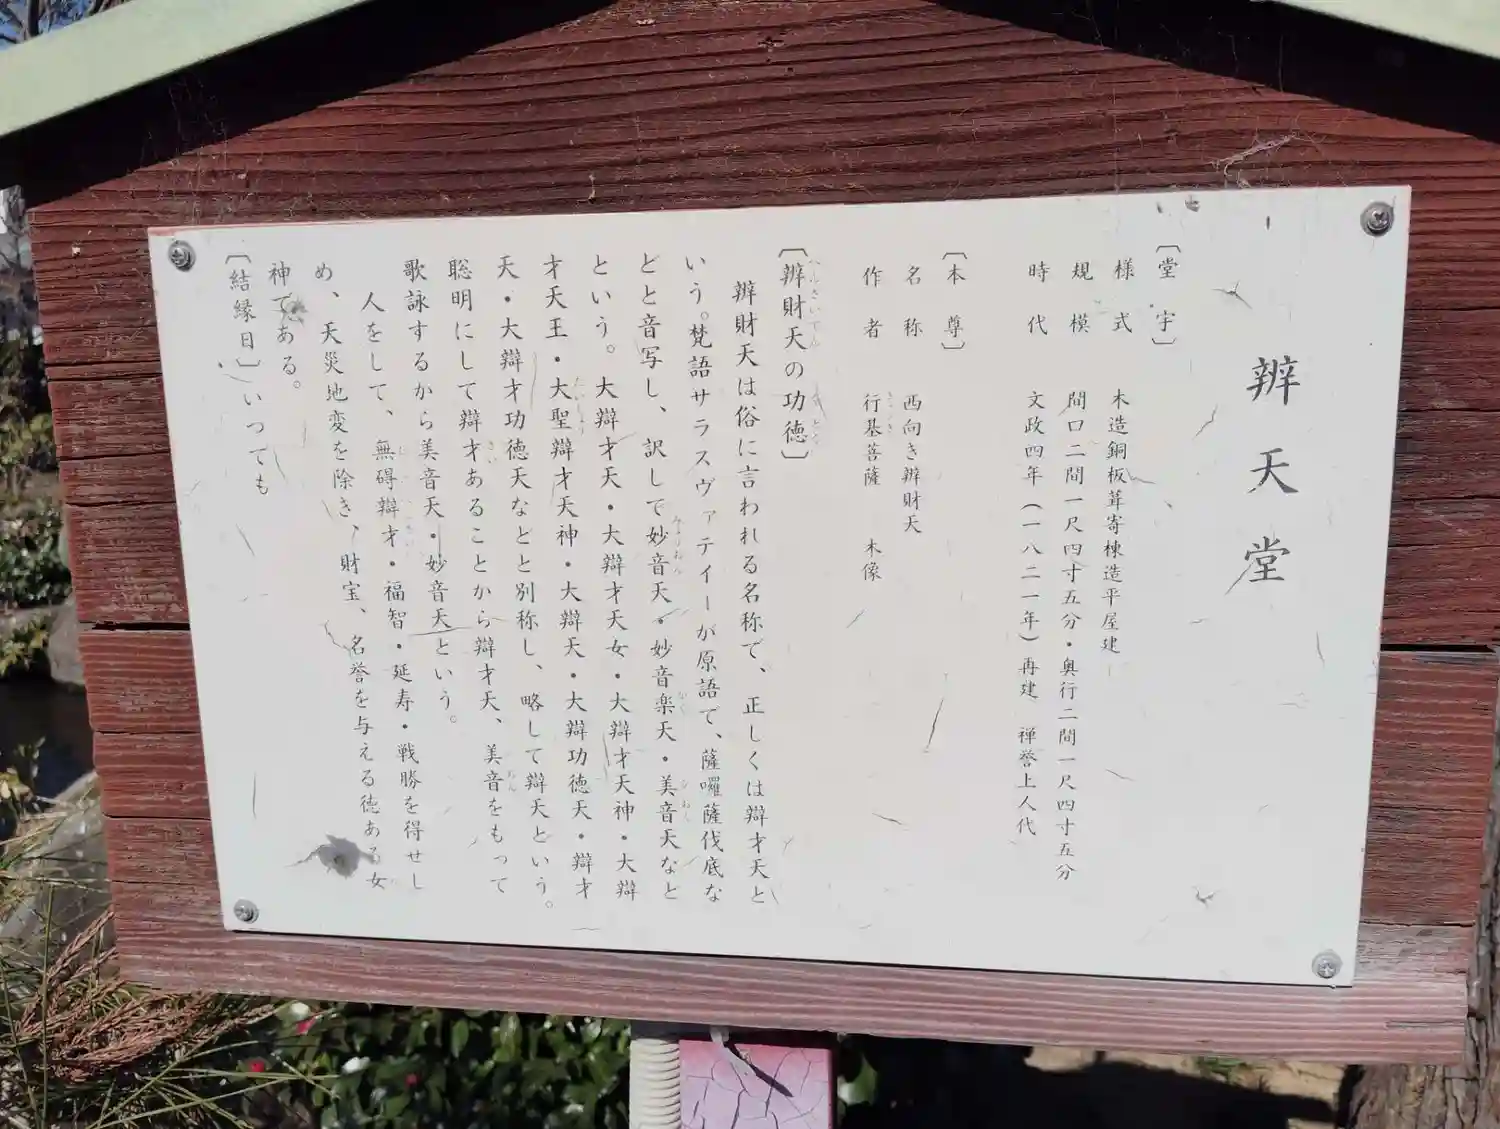 辨天堂
〔堂宇〕
様式 木造銅板葺寄棟造平屋建
規模 間口二間一尺四寸五分・奥行二間一尺四寸五分
時代 文政四年(一八二一年)再建 禅誉上人代
〔本尊〕
名称 西向き辨財天
作者 行基菩薩 木像
〔辨財天の功徳〕
辨財天は俗に言われる名称で、正しくは辯才天と
いう。梵語サラスヴァティーが原語で、薩囉薩伐底な
どと音写し、訳して妙音天・妙音楽天・美音天など
という。大辯才天・大辯才天女・大辯才天神・大辯
才天王・大聖辯才天神・大辯天・大辯功徳天・辯才
天・大辯才功徳天などと別称し、略して辯天という。
聡明にして辯才あることから辯才天、美音をもって
歌詠するから美音天・妙音天という。
人をして、無碍辯才・福智・延寿・戦勝を得せし
め、天災地変を除き、財宝、名誉を与える徳ある女
神である。
〔結縁日〕いつても